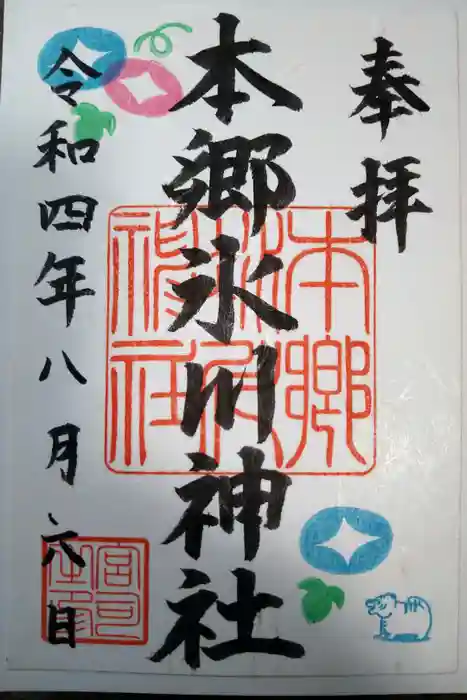 奉拝
本郷氷川神社
令和四年八月六日
本郷
神社
宮司